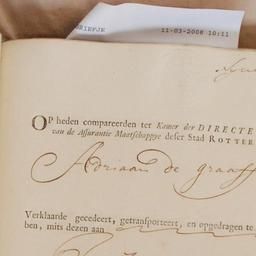 BRIEFJE 11-03-2008 10:11
OP heden compareerden ter Kamer der DIRECTE
van de Assurantie Maatschappye deser Stad ROTTER
Adriaan de graaff
Verklaarde gecedeert, getransporteert, en opgedragen te
ben, mits dezen aan